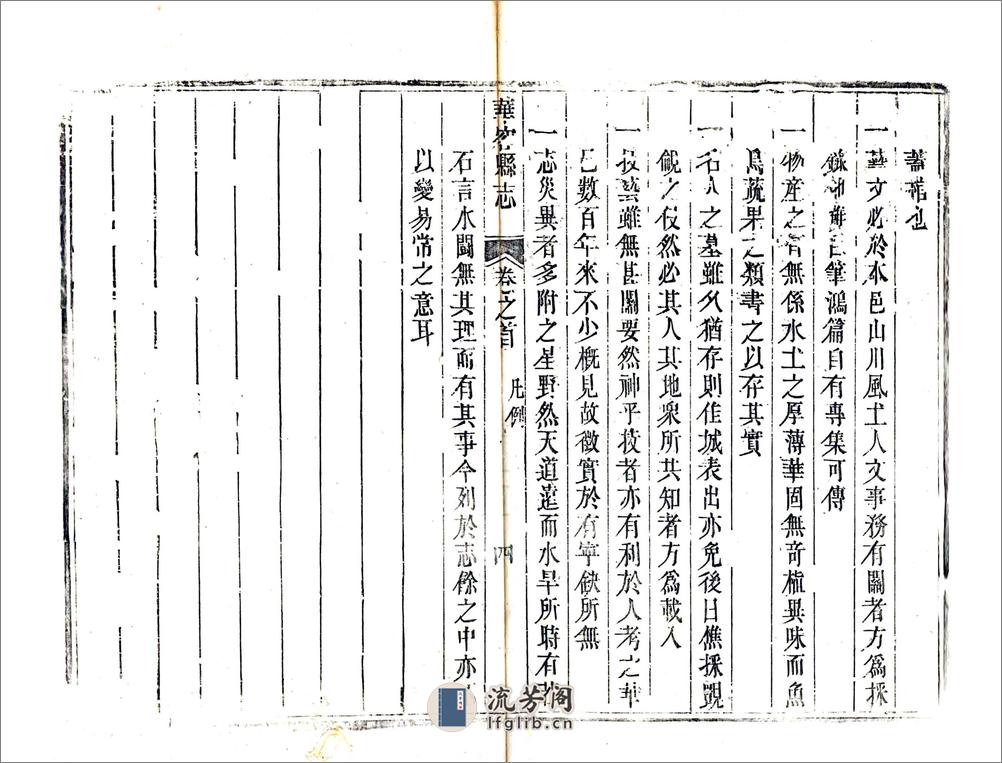 蓄稽也
一藝文必於本邑山川風土人文事務有關者方爲採
錄 筆鴻篇自有專集可傳
一物産之 無係水土之厚薄華固無奇植異味而魚
鳥蔬果之類書之以存其實
一名人之墓雖久猶存則佳城表出亦免後日樵採覬
覦之伎然必其人其地衆所共知者方爲載入
一技藝雖無甚關要然神乎技者亦有利於人考之華
已數百年來不少概見故徵實於有寧缺所無
一志災異者多附之星野然天道遠而水旱所時有
華容縣志 卷之首 凡例 四
石言水鬭無其理而有其事今列於志餘之中亦
以變易常之意耳
流芳阁
lfglib.cn